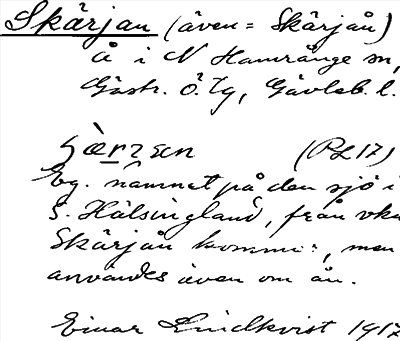 Skärjan (även = Skärjån)
å i N Hamrånge sn,
Gästr. Ö. Tg, Gävleb. l.
(PL 17)
Eg. namnet på den sjö i
S. Hälsingland, från vka
Skärjån kommer, men
användes även om ån.
Einar Lindkvist 1917